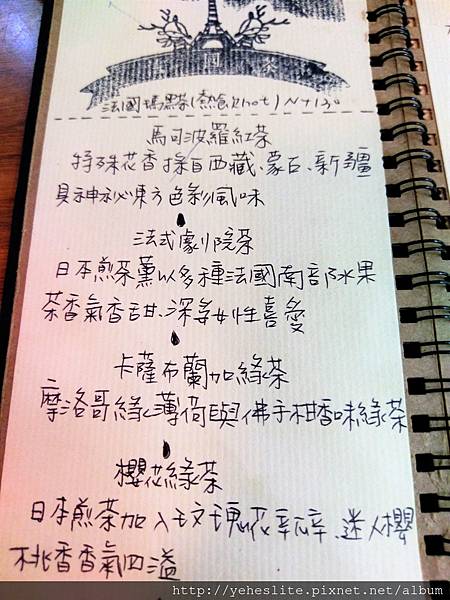 法國瑪黑茶(熱飲hot) NT130
馬可波羅紅茶
特殊花香採自西藏、蒙古、新疆
具神祕東方色彩風味
法式劇院茶
日本煎茶薰以多種法國南部水果
茶香氣香甜、深尋女性喜愛
卡薩布蘭加綠茶
摩洛哥綠薄荷與佛手柑香味綠茶
櫻花綠茶
日本煎茶加入玫瑰花瓣、迷人櫻
桃香香氣四溢
http://yeheslite.pixnet.net/album